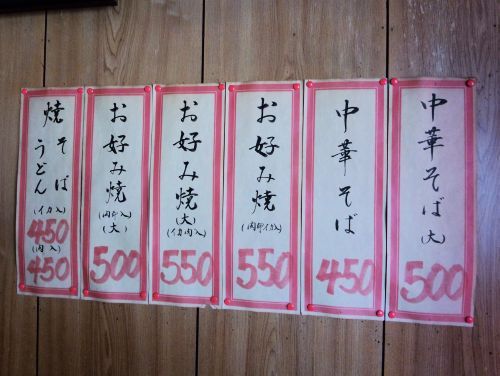 中華そば(大)
500
中華そば
450
お好み焼
(肉卵イカ入)
550
お好み焼
(大)
(イカ肉入)
550
お好み焼
(肉卵入)
(大)
500
焼そば
うどん
(イカ入)
450
(肉入)
450